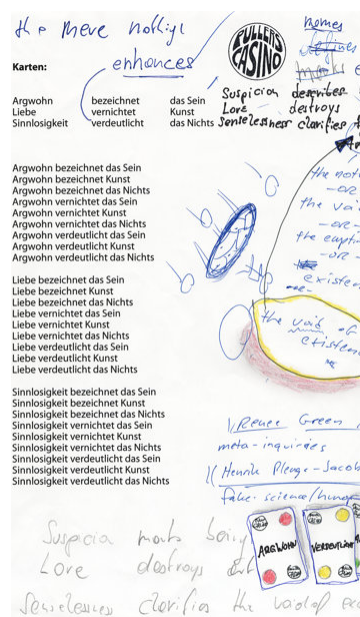 the mere nothing
enhances
PULLERS CASINO
names
defines
Karten:
Argwohn bezeichnet das Sein
Liebe vernichtet Kunst
Sinnlosigkeit verdeutlicht das Nichts
Suspicion describes
Love destroys
Senselessness clarifies
Argwohn bezeichnet das Sein
Argwohn bezeichnet Kunst
Argwohn bezeichnet das Nichts
Argwohn vernichtet das Sein
Argwohn vernichtet Kunst
Argwohn vernichtet das Nichts
Argwohn verdeutlicht das Sein
Argwohn verdeutlicht Kunst
Argwohn verdeutlicht das Nichts
Liebe bezeichnet das Sein
Liebe bezeichnet Kunst
Liebe bezeichnet das Nichts
Liebe vernichtet das Sein
Liebe vernichtet Kunst
Liebe vernichtet das Nichts
Liebe verdeutlicht das Sein
Liebe verdeutlicht Kunst
Liebe verdeutlicht das Nichts
Sinnlosigkeit bezeichnet das Sein
Sinnlosigkeit bezeichnet Kunst
Sinnlosigkeit bezeichnet das Nichts
Sinnlosigkeit vernichtet das Sein
Sinnlosigkeit vernichtet Kunst
Sinnlosigkeit vernichtet das Nichts
Sinnlosigkeit verdeutlicht das Sein
Sinnlosigkeit verdeutlicht Kunst
Sinnlosigkeit verdeutlicht das Nichts
the
-OR-
the voi
-OR-
the empt
-OR-
existen
-OR-
the void of
existence
Renee Green
meta-inquiries
Henrik Plenge-Jacob
fake-science/
Suspicion being
Love destroys
Senselessness clarifies the void of
ARGWOHN